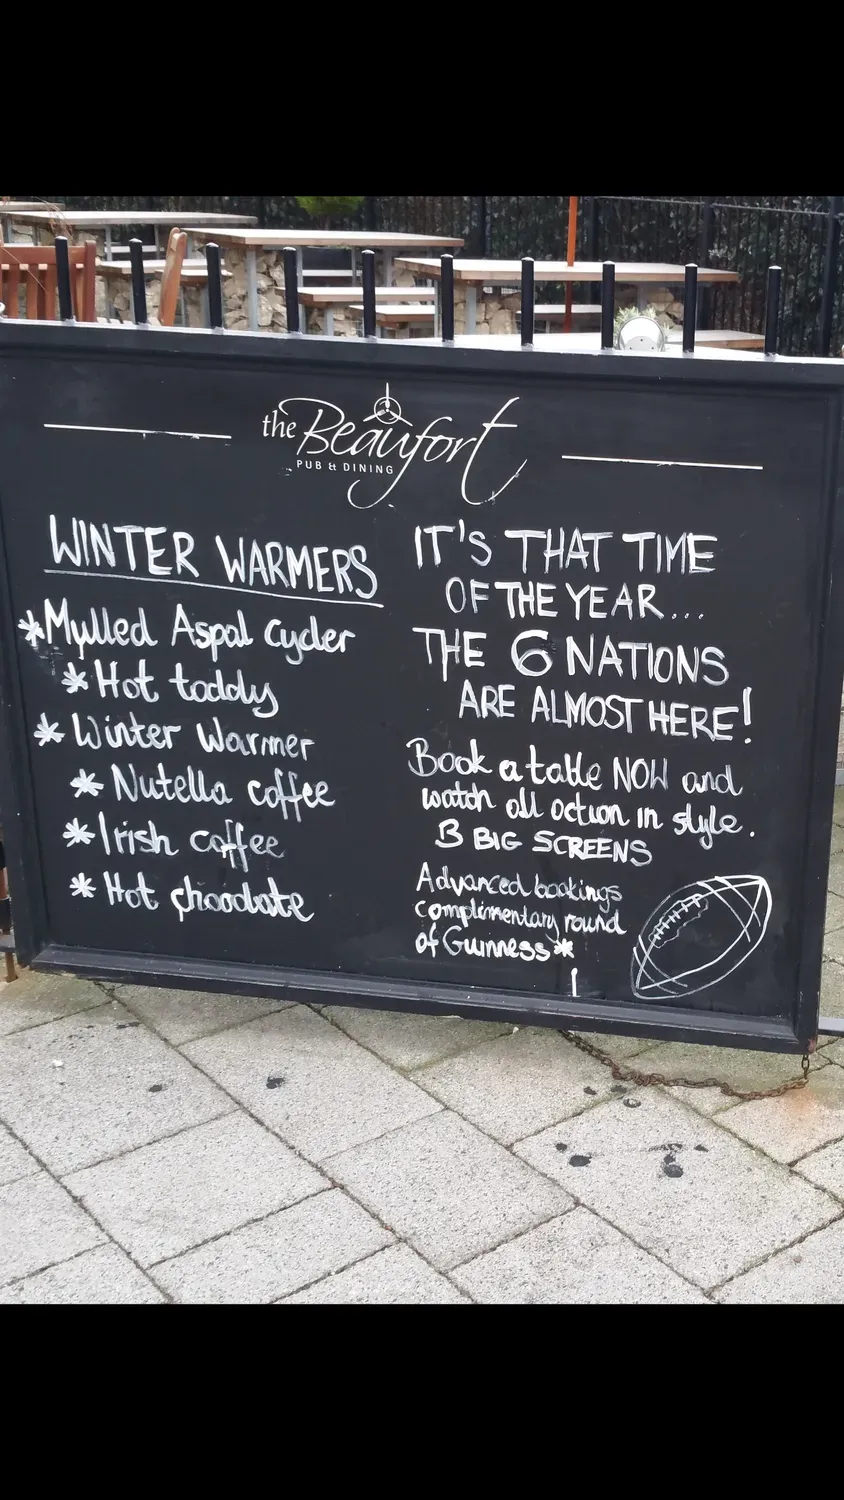 the Beaufort
PUB & DINING
WINTER WARMERS
*Mulled Aspal Cyder
*Hot toddy
*Winter Warmer
*Nutella coffee
*Irish coffee
*Hot choodate
IT'S THAT TIME
OF THE YEAR...
THE 6 NATIONS
ARE ALMOST HERE!
Book a table NOW and
watch all action in style.
3 BIG SCREENS
Advanced bookings
complimentary round
of Guinness*